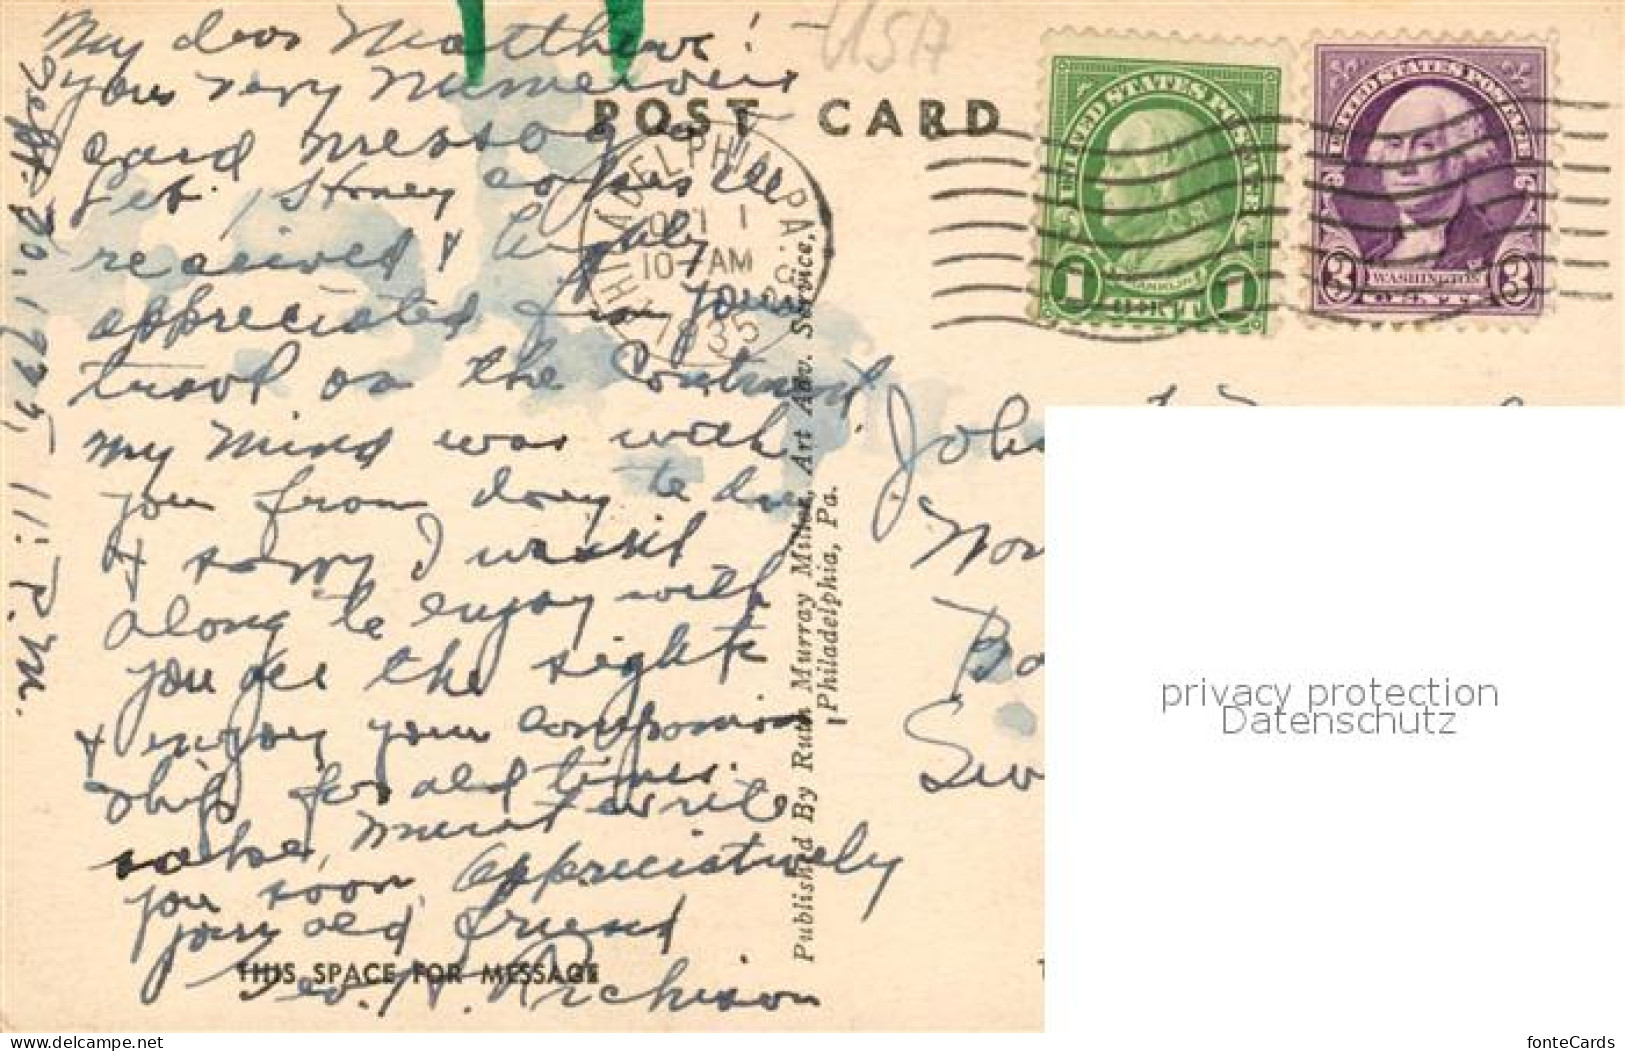 Sept. 30, 1935, 11: P.M.
My dear Matthew!
your very numerous
card messages
let. & Honey copies all
received & highly
appreciated from your
travel on the Continent
my mind was with
you from day to day
& sorry I wasnt
along to enjoy with
you all the sights
& enjoy your companion
ship for old times
sake, must write
you soon, Appreciatively
your old friend
Geo. W. Archison
THIS SPACE FOR MESSAGE
USA
POST CARD
PHILADELPHIA, PA.
OCT 1
10 - AM
1935
UNITED STATES POSTAGE
1 FRANKLIN 1
CENT
UNITED STATES POSTAGE
3 WASHINGTON 3
Published By Ruth Murray Miller, Art Adv. Service,
Philadelphia, Pa.
John
Swi
privacy protection
Datenschutz
www.delcampe.net
fonteCards